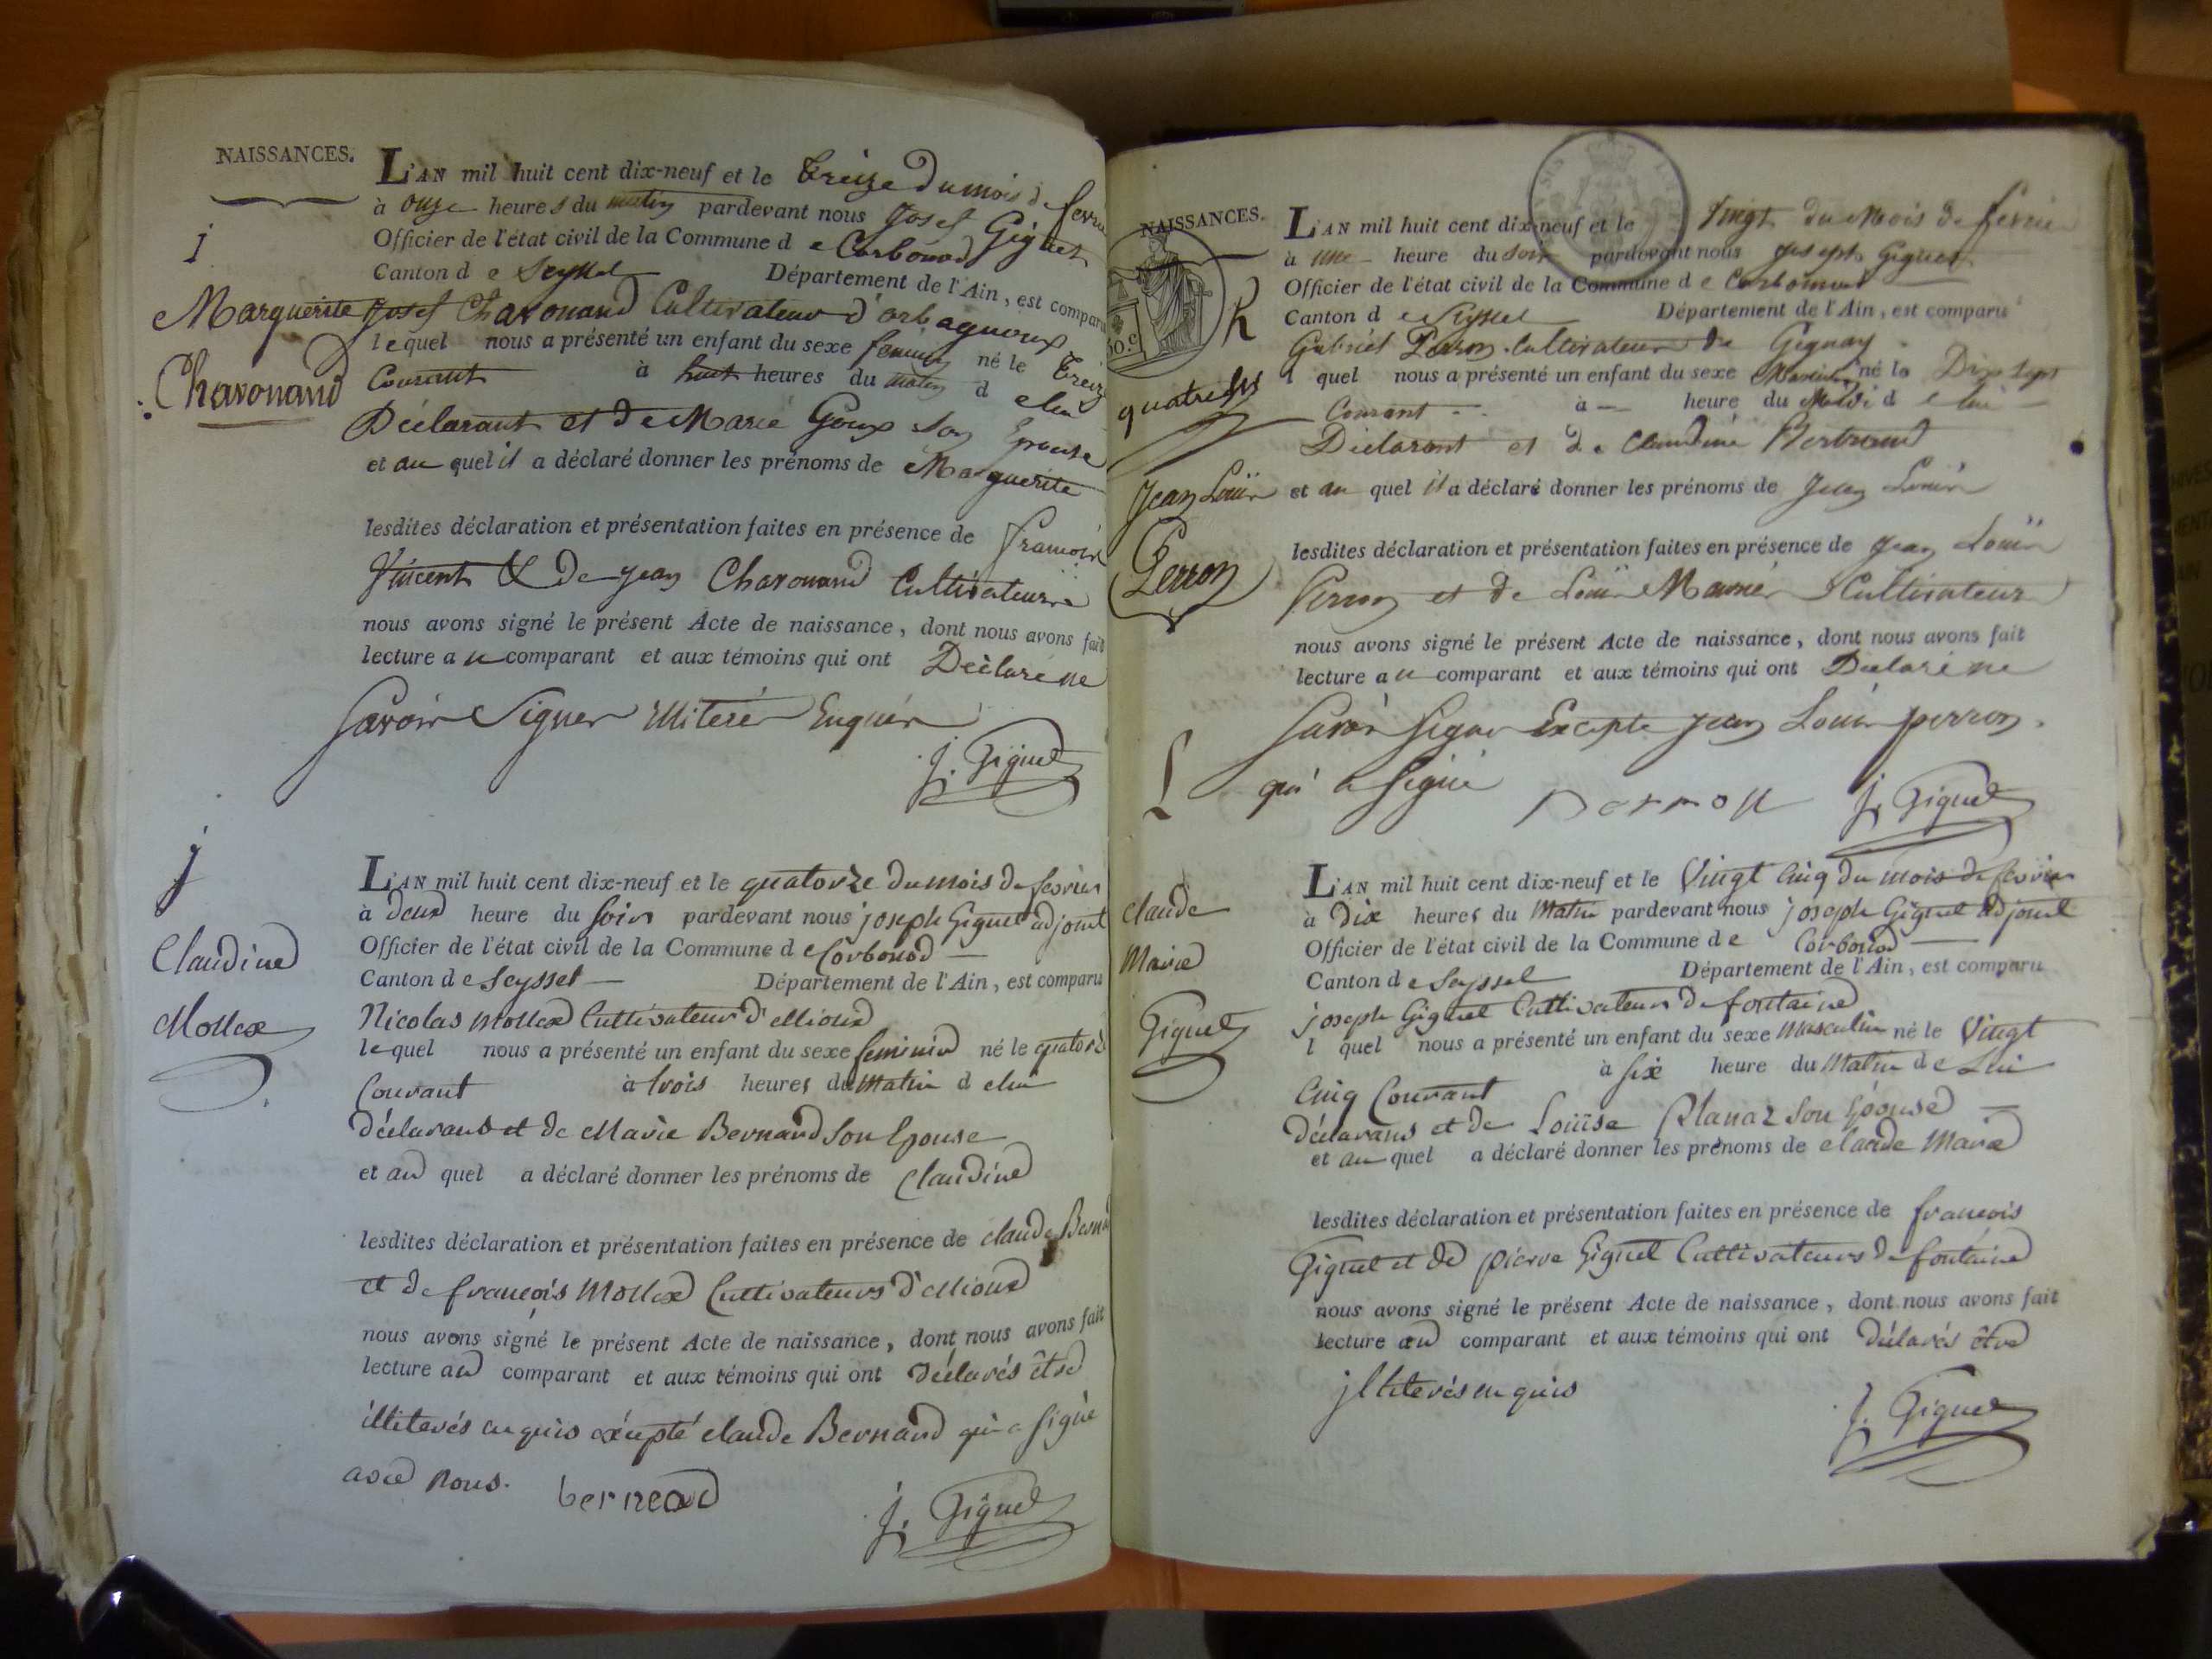 NAISSANCES.
I
Marguerite
Charonand
L'AN mil huit cent dix-neuf et le treize du mois de fevrie
à onze heures du matin pardevant nous Josef Giguet
Officier de l'état civil de la Commune de Corbonod
Canton de Seyssel Département de l'Ain, est comparu
Josef Charonand Cultivateur d'orbagnoux
lequel nous a présenté un enfant du sexe feminin né le treize
Courant à huit heures du matin d elui
Déclarant et de Marie Goux son Epouse
et au quel il a déclaré donner les prénoms de Marguerite
lesdites déclaration et présentation faites en présence de francois
Vincent & de jean Charonand Cultivateurs
nous avons signé le présent Acte de naissance, dont nous avons fait
lecture au comparant et aux témoins qui ont Déclaré ne
Savoir Signer Illiteré Enquis
J. Giguet
j
Claudine
Mollex
L'AN mil huit cent dix-neuf et le quatorze du mois de fevrier
à deux heure du soir pardevant nous joseph Giguet adjoint
Officier de l'état civil de la Commune de Corbonod
Canton de Seyssel Département de l'Ain, est comparu
Nicolas Mollex Cultivateur d'
lequel nous a présenté un enfant du sexe feminin né le quatorze
Courant à trois heures du matin d elui
déclarant et de Marie Bernard son Epouse
et au quel a déclaré donner les prénoms de Claudine
lesdites déclaration et présentation faites en présence de claude Berna
et de françois Mollex Cultivateurs d'
nous avons signé le présent Acte de naissance, dont nous avons fait
lecture au comparant et aux témoins qui ont déclarés être
illiterés enquis éxcepté claude Bernard qui a signé
avec nous. bernard
J. Giguet
NAISSANCES.
50.c
quatre
Jean Loüis
Perron
L'AN mil huit cent dix-neuf et le Vingt du mois de fevrier
à une heure du soir pardevant nous joseph Giguet
Officier de l'état civil de la Commune de Corbonod
Canton de Seyssel Département de l'Ain, est comparu
Gabriel Perron Cultivateur de Gignay
l quel nous a présenté un enfant du sexe Masculin né le Dix sept
Courant à — heure du Midi d e lui
Déclarant et de Claudine Bertrand
et au quel il a déclaré donner les prénoms de Jean Loüis
lesdites déclaration et présentation faites en présence de jean Loüis
Perron et de Loüis Cultivateurs
nous avons signé le présent Acte de naissance, dont nous avons fait
lecture au comparant et aux témoins qui ont Déclaré ne
Savoir signer Excepte jean Loüis perron
qui a signé perron J. Giguet
claude
Marie
Giguet
L'AN mil huit cent dix-neuf et le Vingt Cinq du mois de fevrier
à Dix heures du Matin pardevant nous joseph Giguet adjoint
Officier de l'état civil de la Commune de Corbonod
Canton de Seyssel Département de l'Ain, est comparu
joseph Giguet Cultivateur de fontaine
l quel nous a présenté un enfant du sexe Masculin né le Vingt
Cinq Courant à six heure du Matin de Lui
déclarans et de Loüise Planaz son Epouse
et au quel a déclaré donner les prénoms de claude Marie
lesdites déclaration et présentation faites en présence de françois
Giguet et de pierre Giguet Cultivateurs de fontaine
nous avons signé le présent Acte de naissance, dont nous avons fait
lecture au comparant et aux témoins qui ont déclarés être
jlliterés enquis
J. Giguet